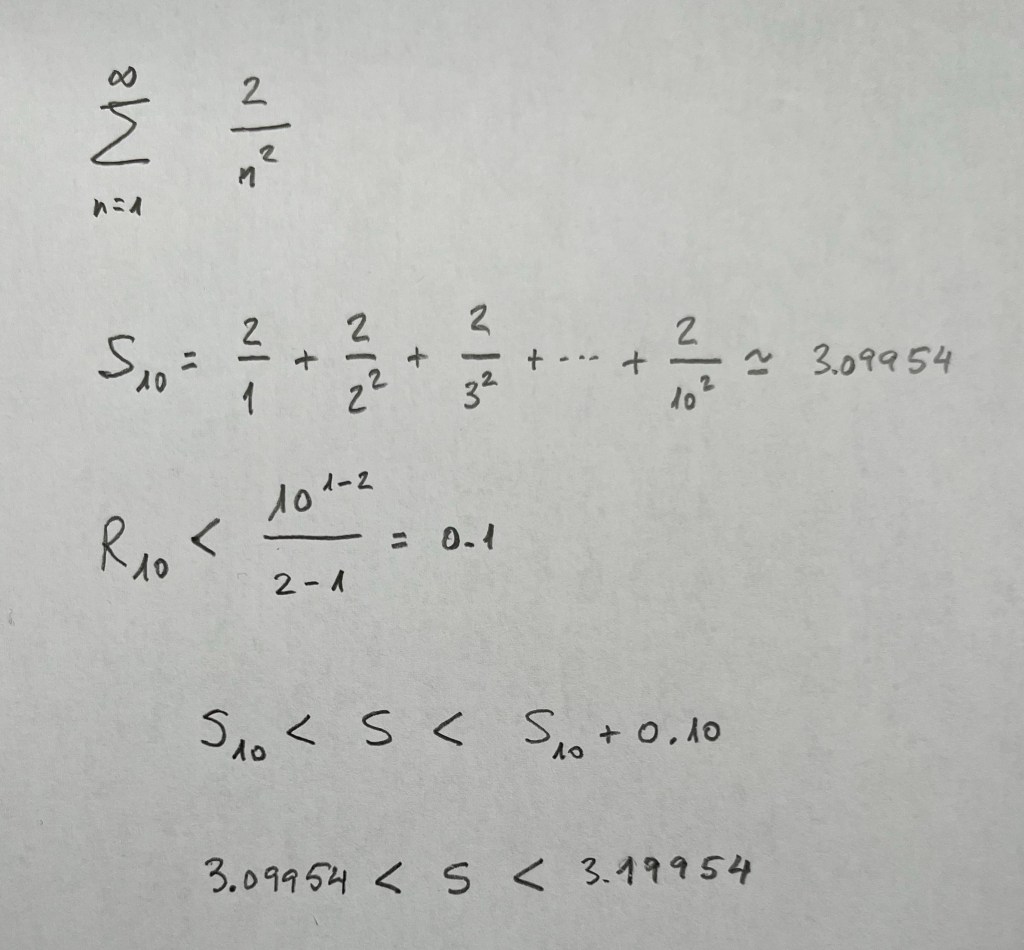 ∞
∑ 2/n²
n=1
S₁₀ = 2/1 + 2/2² + 2/3² + ··· + 2/10² ≃ 3.09954
R₁₀ < 10¹⁻²/2-1 = 0.1
S₁₀ < S < S₁₀ + 0.10
3.09954 < S < 3.19954